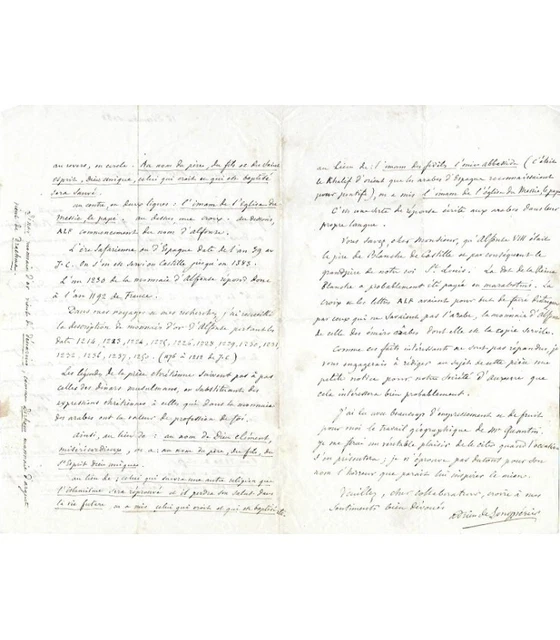 au revers, en cercle. Au nom du père, du fils et du Saint
esprit, Dieu unique, celui qui croit et qui est baptisé
sera sauvé.
au centre, en deux lignes : l'imam de l'église du
Messie, le pape. au dessus une croix. au dessous
ALF commencement du nom d'alfonse.
L'ère Safarienne ou d'Espagne date de l'an 39 av
J-C. On s'en est servi en Castille jusqu'en 1383.
L'an 1230 de la monnaie d'alfonse répond donc
à l'an 1192 de France.
Dans mes voyages et mes recherches, j'ai recueilli
la description de monnaies d'or d'Alfonse portant les
dates 1214, 1225, 1226, 1228, 1229, 1230, 1231,
1232, 1236, 1237, 1250. (1176 à 1212 de J-C)
Les légendes de la pièce chrétienne suivent pas à pas
celles des dinars musulmans, en substituant des
expressions chrétiennes à celles qui dans la monnaie
des arabes ont la valeur de profession de foi.
ainsi, au lieu de : au nom de Dieu clément,
miséricordieux, on a : au nom du père, du fils, du
St Esprit, Dieu unique.
au lieu de : celui qui suivra une autre religion que
l'islamisme sera réprouvé et il perdra son salut dans
la vie future on a mis celui qui croit et qui est baptisé etc
au lieu de : l'imam des fidèles, l'émir abbasside (c'était
le Khalif d'orient que les arabes d'Espagne reconnaissaient
pour pontife), on a mis l'imam de l'église du Messie, le pape
C'est une sorte de réponse écrite aux arabes dans leur
propre langue.
Vous savez, cher Monsieur, qu'Alfonse VIII était
le père de Blanche de Castille et par conséquent le
grandpère de notre roi St Louis. La dot de la Reine
Blanche a probablement été payée en marabotins. La
croix et les lettres ALF avaient pour but de faire distinguer
par ceux qui ne savaient pas l'arabe, la monnaie d'Alfonse
de celle des émirs arabes dont elle est la copie servile.
Comme ces faits intéressants ne sont pas répandus, je
vous engagerais à rédiger au sujet de cette pièce une
petite notice pour notre société d'auxerre que
cela intéressera bien probablement.
J'ai lu avec beaucoup d'empressement et de fruit
pour moi le travail géographique de Mr Quantin.
je me ferai un véritable plaisir de le citer quand l'occasion
s'en présentera ; je n'éprouve pas du tout pour son
nom l'horreur que paraît lui inspirer le mien.
Veuillez, cher collaborateur, croire à mes
sentiments bien dévoués
Adrien de Longpérier